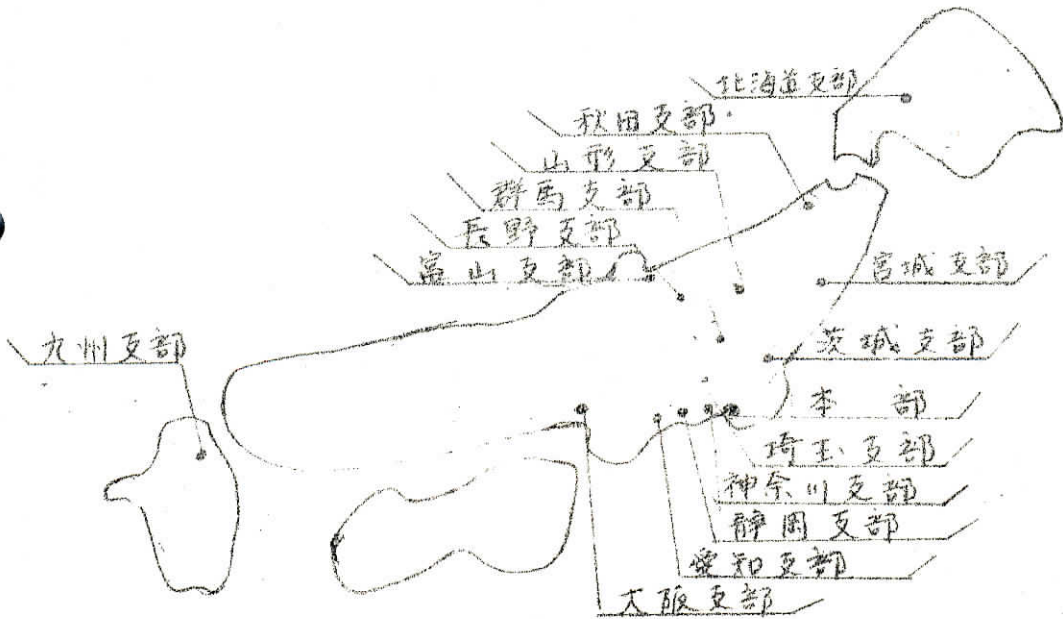 北海道支部
秋田支部
山形支部
群馬支部
長野支部
富山支部
宮城支部
九州支部
茨城支部
本部
埼玉支部
神奈川支部
静岡支部
愛知支部
大阪支部